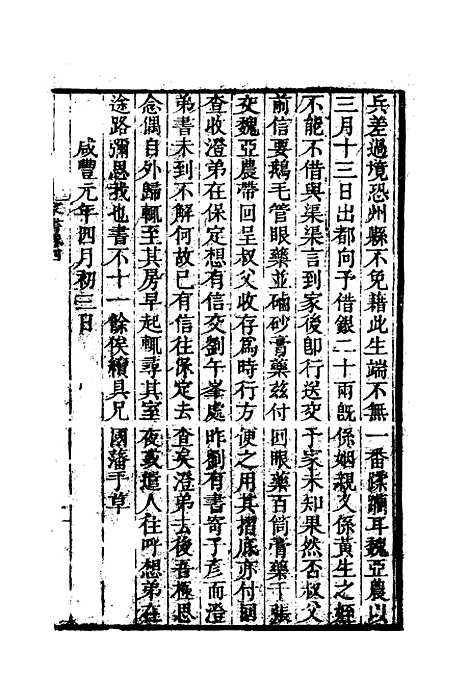 兵差過境恐州縣不免藉此生端不無一番蹂躪耳魏亞農以
三月十三日出都向予借銀二十兩既係姻親又係黃生之姪
不能不借與渠渠言到家後即行送交予家未知果然否叔父
前信要鵝毛管眼藥並硇砂膏藥茲付回眼藥百筒膏藥千張
交魏亞農帶回呈叔父收存為時行方便之用其摺底亦付回
查收澄弟在保定想有信交劉午峯處昨劉有書寄子彥而澄
弟書未到不解何故已有信往保定去查矣澄弟去後吾極思
念偶自外歸輒至其房早起輒尋其室夜或遣人往呼想弟在
途路彌思我也書不十一餘俟續具兄國藩手草
咸豐元年四月初三日